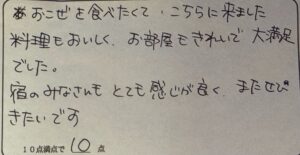 おこぜを食べたくて、こちらに来ました
料理もおいしく、お部屋もきれいで大満足
でした。
宿のみなさんもとても感じが良く、またぜひ
きたいです
10点満点で 10 点